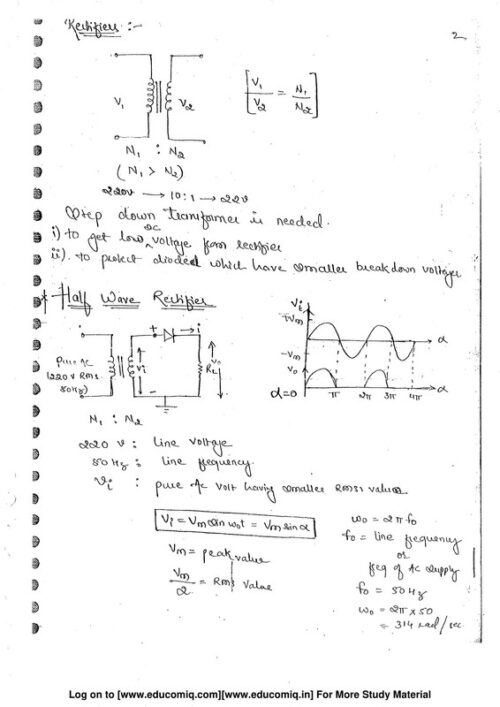 Rectifiers :-
2
V1 V2
[V1/V2 = N1/N2]
N1 : N2
(N1 > N2)
220V → 10:1 → 22V
Step down transformer is needed.
i) to get low DC voltage from rectifier
ii). to protect diodes which have smaller breakdown voltages
* Half Wave Rectifier
pure AC
(220V RMS
50Hz)
+ i
Vi
-
RL Vo
N1 : N2
Vi
+Vm
-Vm
α
Vo
α=0 π 2π 3π 4π α
220 V : line voltage
50 Hz : line frequency
Vi : pure AC volt having smaller RMS value
Vi = Vm sin ω0t = Vm sin α
Vm = peak value
Vm/2 = RMS value
ω0 = 2πf0
f0 = line frequency
or
freq of AC supply
f0 = 50Hz
ω0 = 2π × 50
= 314 rad/sec
Log on to [www.educomiq.com][www.educomiq.in] For More Study Material